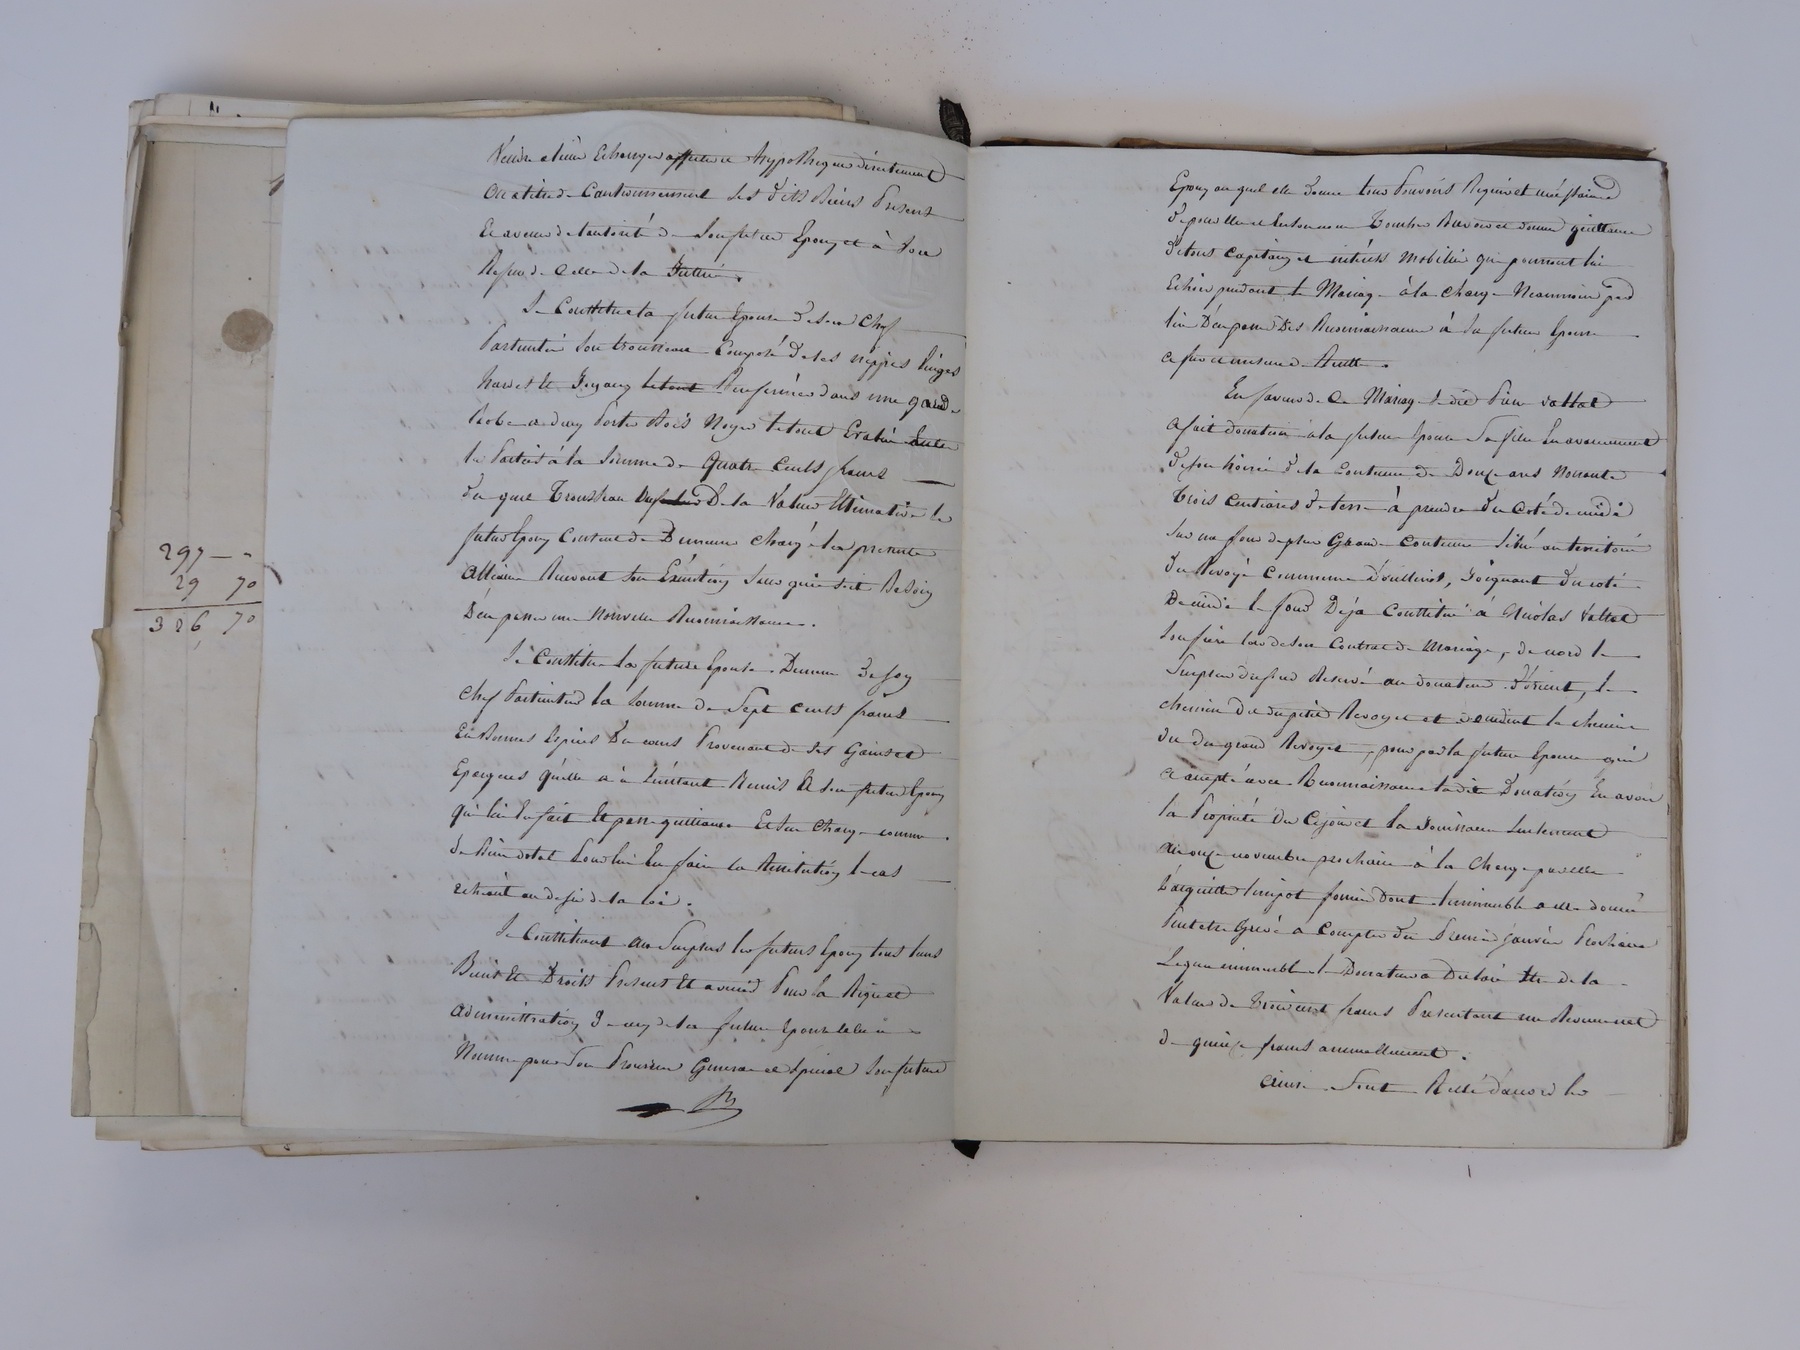 297 — "
29 70
326, 70
Vendre aliéner Echanger affecter et hypothequer directement
ou a titre de Cautionnement Ses dits Biens Present
Et avenir de lautorité de Son futur Epoux et à Son
Refus de Celle de la Justice.
Se Constitue la future Epouse de Son Chef
Particulier Son trousseau Composé de Ses nippes linges
hardes et Joyaux le tout Renfermé dans une garde
Robe a deux Portes Bois Noyer le tout Evalué Entre
les Parties à la Somme de Quatre Cents francs
du quel Trousseau De la Valeur Estimative le
futur Epoux Consent de Demeurer Chargé la présente
Alliance Recevant Son Exécution Sans quil soit Besoin
D'en passer une Nouvelle Reconnoissance.
Se Constitue la future Epouse Demeure De Son
Chef Particulier la Somme de Sept Cents francs
En Bonnes Espèces De cours Provenant de Ses Gains et
Epargnes quelle a à linstant Remis à Son futur Epoux
qui lui En fait Et passe quittance Et Sen Charge comme
de Bien dotal Pour lui En faire la Restitution le cas
echéant au desir de la loi.
Se Constituent au Surplus les futurs Epoux tous leurs
Biens Et Droits Present Et avenir Pour la Régie et
administration De ceux de la future Epouse celle ci
Nomme pour Son Procureur General et Special Son futur
Epoux au quel elle donne tous Pouvoirs Requis et nécessaires
de pour elle et En Son nom Toucher Recevoir et donner quittance
de tous Capitaux et intérêts Mobilier qui pourront lui
Echeoir pendant le Mariage à la Charge Néanmoins par
lui D'en passer Des Reconnoissances à Sa future Epouse
a fur et mesure de Recette.
En faveur de Ce Mariage le dit Pierre Vallat
a fait donation à la future Epouse Sa fille En avancement
de Son hoirie de la Contenue de Douze ares Nonante
Trois Centiares de terre à prendre du Coté de midi
Sur un fond de plus Grande Contenue Situé au territoire
du Revoyé Commune d'oullins, Joignant du coté
De midi le fond Déja Constitué à Nicolas Vallat
Son frère lors de Son Contrat de Mariage, de nord le
Surplus du fond Reservé au donateur d'orient, le
chemin Dit du petit Revoyet et d'occident le chemin
dit du grand Revoyet, pour par la future Epouse qui
accepte avec Reconnoissance la dite Donation En avoir
la Propriété Des Cejourd et la Jouissance Seulement
au onze novembre prochain à la Charge par elle
D'acquitter limpot foncier Dont limmeuble a elle donné
Peut etre Grevé a Compter du Premier Janvier Prochain
Lequel immeuble le Donateur a Declaré Etre de la
Valeur de Trois cent francs Presentant un Revenu net
de quinze francs annuellement.
Ainsi Sont Reglé d'accord les